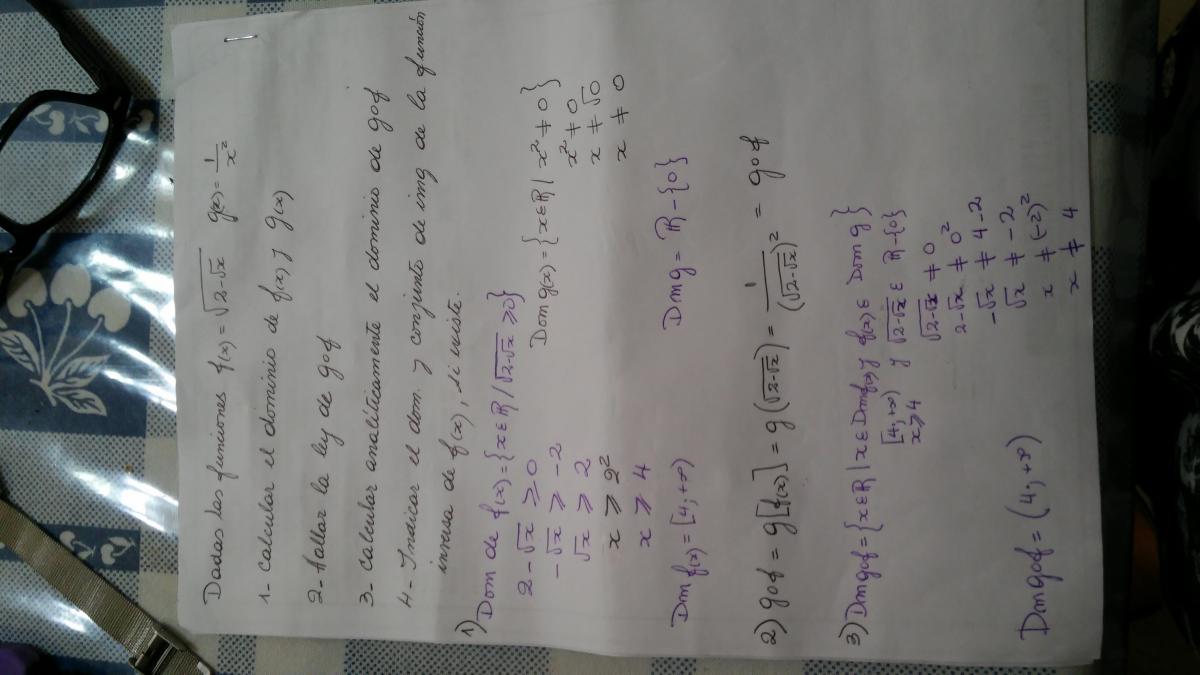 Dadas las funciones f(x) = √(2-√x)   g(x) = 1/x²
1- Calcular el dominio de f(x) y g(x)
2- Hallar la ley de gof
3- Calcular analiticamente el dominio de gof
4- Indicar el dom. y conjunto de img de la función
inversa de f(x), si existe.
1) Dom de f(x) = {x ∈ ℝ / √(2-√x) ≥ 0}
2-√x ≥ 0
-√x ≥ -2
√x ≥ 2
x ≥ 2²
x ≥ 4
Dm f(x) = [4; +∞)
Dom g(x) = {x ∈ ℝ | x² ≠ 0}
x² ≠ 0
x ≠ √0
x ≠ 0
Dmg = ℝ - {0}
2) gof = g[f(x)] = g(√(2-√x)) = 1/(√(2-√x))² = gof
3) Dmgof = {x ∈ ℝ | x ∈ Dmf(x) y f(x) ∈ Dom g}
[4; +∞) y √(2-√x) ∈ ℝ-{0}
x ≥ 4
√(2-√x) ≠ 0
2-√x ≠ 0²
-√x ≠ 4-2
√x ≠ -2
x ≠ (-2)²
x ≠ 4
Dmgof = (4; +∞)